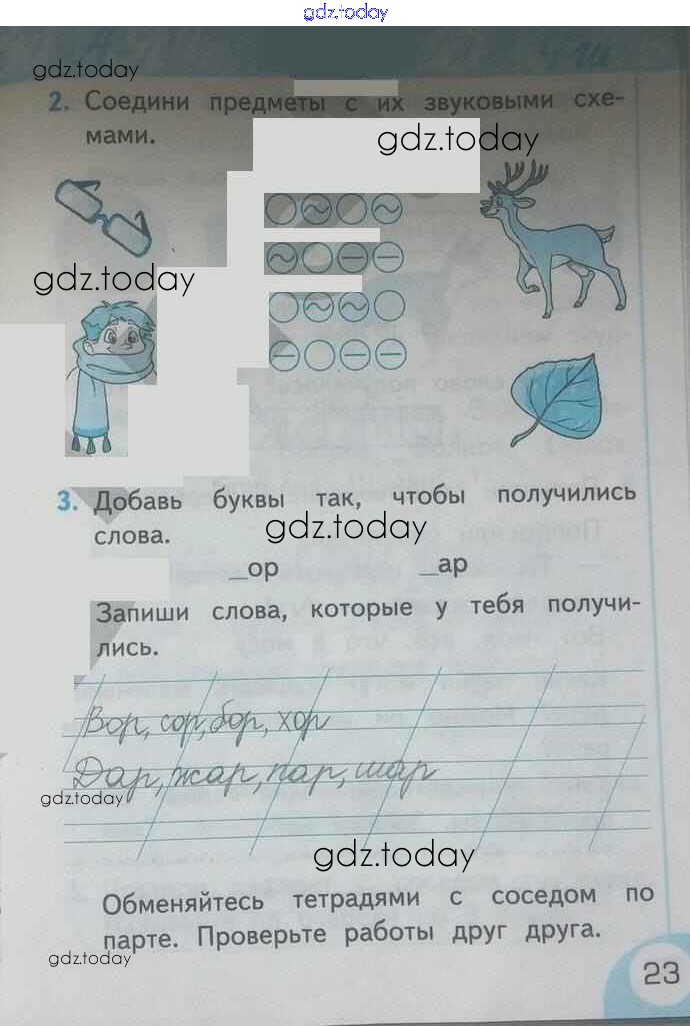 gdz.today
gdz.today
2. Соедини предметы с их звуковыми схе-
gdz.today
мами.
gdz.today
3. Добавь буквы так, чтобы получились
gdz.today
слова.
_ор _ар
Запиши слова, которые у тебя получи-
лись.
Вор, сор, бор, хор
Дар, жар, пар, шар
gdz.today
gdz.today
Обменяйтесь тетрадями с соседом по
парте. Проверьте работы друг друга.
gdz.today
23